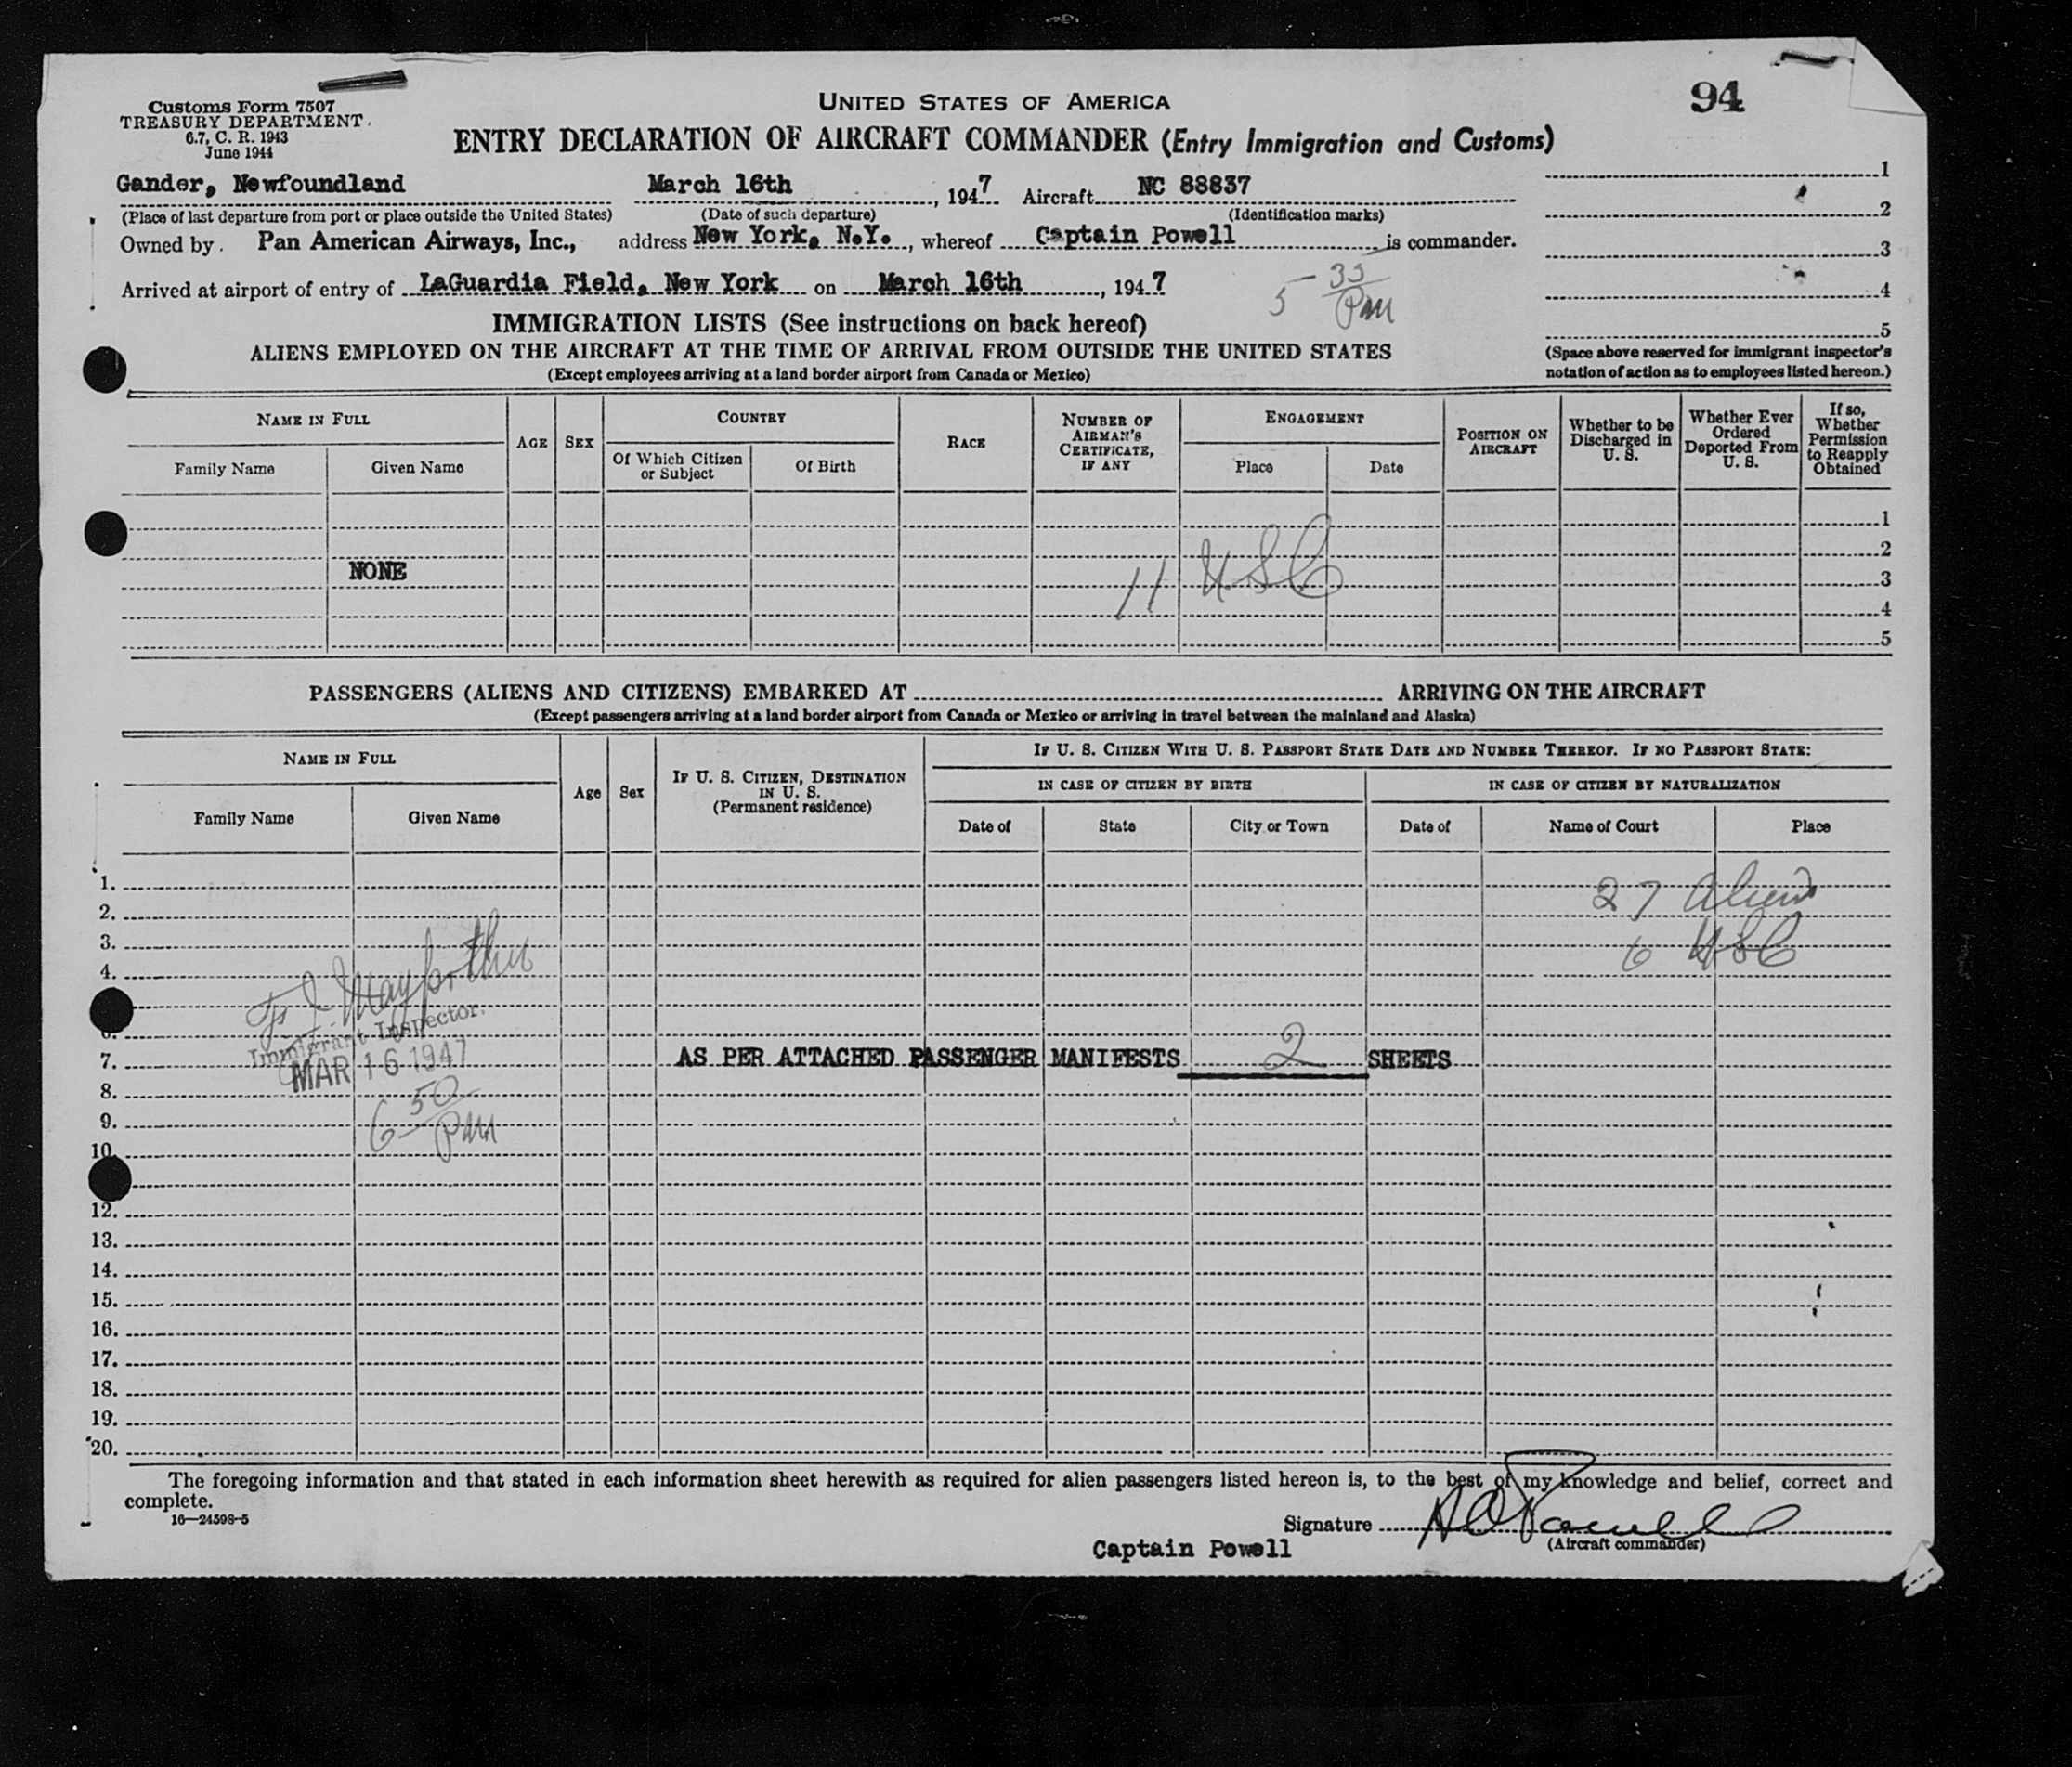 94
Customs Form 7507
TREASURY DEPARTMENT
6.7, C. R. 1943
June 1944
UNITED STATES OF AMERICA
ENTRY DECLARATION OF AIRCRAFT COMMANDER (Entry Immigration and Customs)
Gander, Newfoundland March 16th, 1947 Aircraft NC 88837
(Place of last departure from port or place outside the United States) (Date of such departure) (Identification marks)
Owned by Pan American Airways, Inc., address New York, N.Y., whereof Captain Powell is commander.
Arrived at airport of entry of LaGuardia Field, New York on March 16th, 1947
5-35 PM
1
2
3
4
5
(Space above reserved for immigrant inspector's
notation of action as to employees listed hereon.)
IMMIGRATION LISTS (See instructions on back hereof)
ALIENS EMPLOYED ON THE AIRCRAFT AT THE TIME OF ARRIVAL FROM OUTSIDE THE UNITED STATES
(Except employees arriving at a land border airport from Canada or Mexico)
NAME IN FULL
Family Name Given Name
AGE
SEX
COUNTRY
Of Which Citizen or Subject
Of Birth
RACE
NUMBER OF AIRMAN'S CERTIFICATE, IF ANY
ENGAGEMENT
Place Date
POSITION ON AIRCRAFT
Whether to be Discharged in U. S.
Whether Ever Ordered Deported From U. S.
If so, Whether Permission to Reapply Obtained
1
2
NONE 11 USC 3
4
5
PASSENGERS (ALIENS AND CITIZENS) EMBARKED AT ARRIVING ON THE AIRCRAFT
(Except passengers arriving at a land border airport from Canada or Mexico or arriving in travel between the mainland and Alaska)
NAME IN FULL
Family Name Given Name
Age
Sex
IF U. S. CITIZEN, DESTINATION IN U. S.
(Permanent residence)
IF U. S. CITIZEN WITH U. S. PASSPORT STATE DATE AND NUMBER THEREOF. IF NO PASSPORT STATE:
IN CASE OF CITIZEN BY BIRTH
Date of State City or Town
IN CASE OF CITIZEN BY NATURALIZATION
Date of Name of Court Place
1. 27 Aliens
2.
3. 6 USC
4.
Immigrant Inspector.
6.
7. MAR 16 1947 AS PER ATTACHED PASSENGER MANIFESTS 2 SHEETS
8.
9. 6-50 PM
10.
12.
13.
14.
15.
16.
17.
18.
19.
20.
The foregoing information and that stated in each information sheet herewith as required for alien passengers listed hereon is, to the best of my knowledge and belief, correct and
complete.
16—24598-5
Signature Powell
(Aircraft commander)
Captain Powell